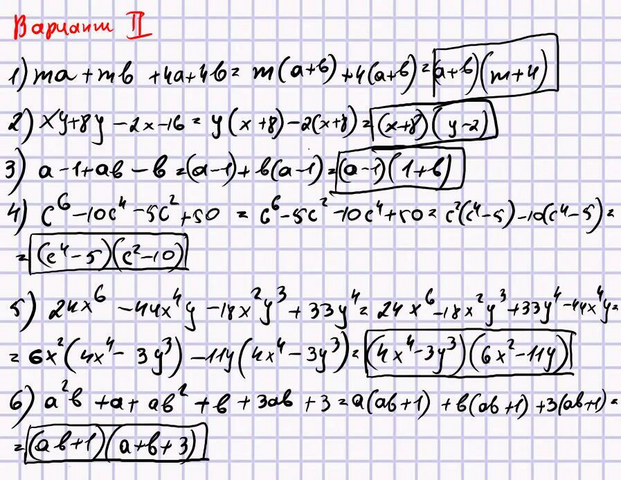 Вариант II
1) ma + mb + 4a + 4b = m(a+b) + 4(a+b) = (a+b)(m+4)
2) xy + 8y - 2x - 16 = y(x+8) - 2(x+8) = (x+8)(y-2)
3) a - 1 + ab - b = (a-1) + b(a-1) = (a-1)(1+b)
4) c⁶ - 10c⁴ - 5c² + 50 = c⁶ - 5c² - 10c⁴ + 50 = c²(c⁴-5) - 10(c⁴-5) =
= (c⁴-5)(c²-10)
5) 24x⁶ - 44x⁴y - 18x²y³ + 33y⁴ = 24x⁶ - 18x²y³ + 33y⁴ - 44x⁴y =
= 6x²(4x⁴ - 3y³) - 11y(4x⁴ - 3y³) = (4x⁴-3y³)(6x²-11y)
6) a²b + a + ab² + b + 3ab + 3 = a(ab+1) + b(ab+1) + 3(ab+1) =
= (ab+1)(a+b+3)